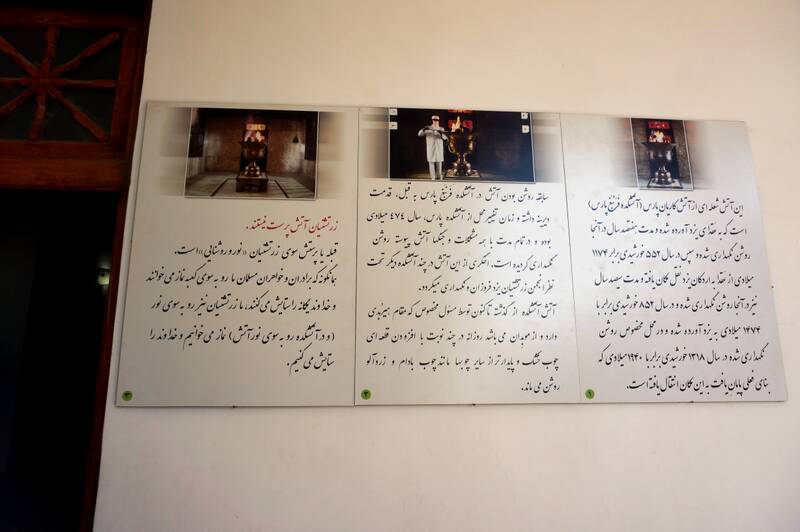 این آتش شعله ای از آتش کاریان پارس (آتشکده فَرنبَغ پارس)
است که به عقدای یزد آورده شده و مدت هفتصد سال در آنجا
روشن نگهداری شده و سپس در سال ۵۵۲ خورشیدی برابر ۱۱۷۴
میلادی از عقدا به اردکان یزد نقل مکان یافته و مدت سیصد سال
نیز در آنجا روشن نگهداری شده و در سال ۸۵۲ خورشیدی برابر با
۱۴۷۴ میلادی به یزد آورده شده و در محل مخصوص روشن
نگهداری شده در سال ۱۳۱۸ خورشیدی برابر با ۱۹۴۰ میلادی که
بنای فعلی پایان یافت به این مکان انتقال یافته است.
۱
سابقه روشن بودن آتش در آتشکده فَرنبَغ پارس به قبل، قدمت
دیرینه داشته و زمان تغییر محل از آتشکده پارس، سال ۴۷۴ میلادی
بوده و در تمام مدت با همه مشکلات و جنگها آتش پیوسته روشن
نگهداری گردیده است، اخگری از این آتش در چند آتشکده دیگر تحت
نظر انجمن زرتشتیان یزد فروزان و نگهداری میگردد.
آتش آتشکده از گذشته تا کنون توسط مسئول مخصوص که مقام هیربُدی
دارد و از موبدان می باشد روزانه در چند نوبت با افزودن قطعه ای
چوب خشک و پایدارتر از سایر چوبها مانند چوب بادام و زردآلو
روشن می ماند.
۲
زرتشتیان آتش پرست نیستند.
قبله یا پرستش سوی زرتشتیان «نور و روشنایی» است.
همانگونه که برادران و خواهران مسلمان ما رو به سوی کعبه نماز می خوانند
و خداوند یگانه را ستایش می کنند، ما زرتشتیان نیز رو به سوی نور
(و در آتشکده رو به سوی نور آتش) نماز می خوانیم و خداوند را
ستایش می کنیم.
۳